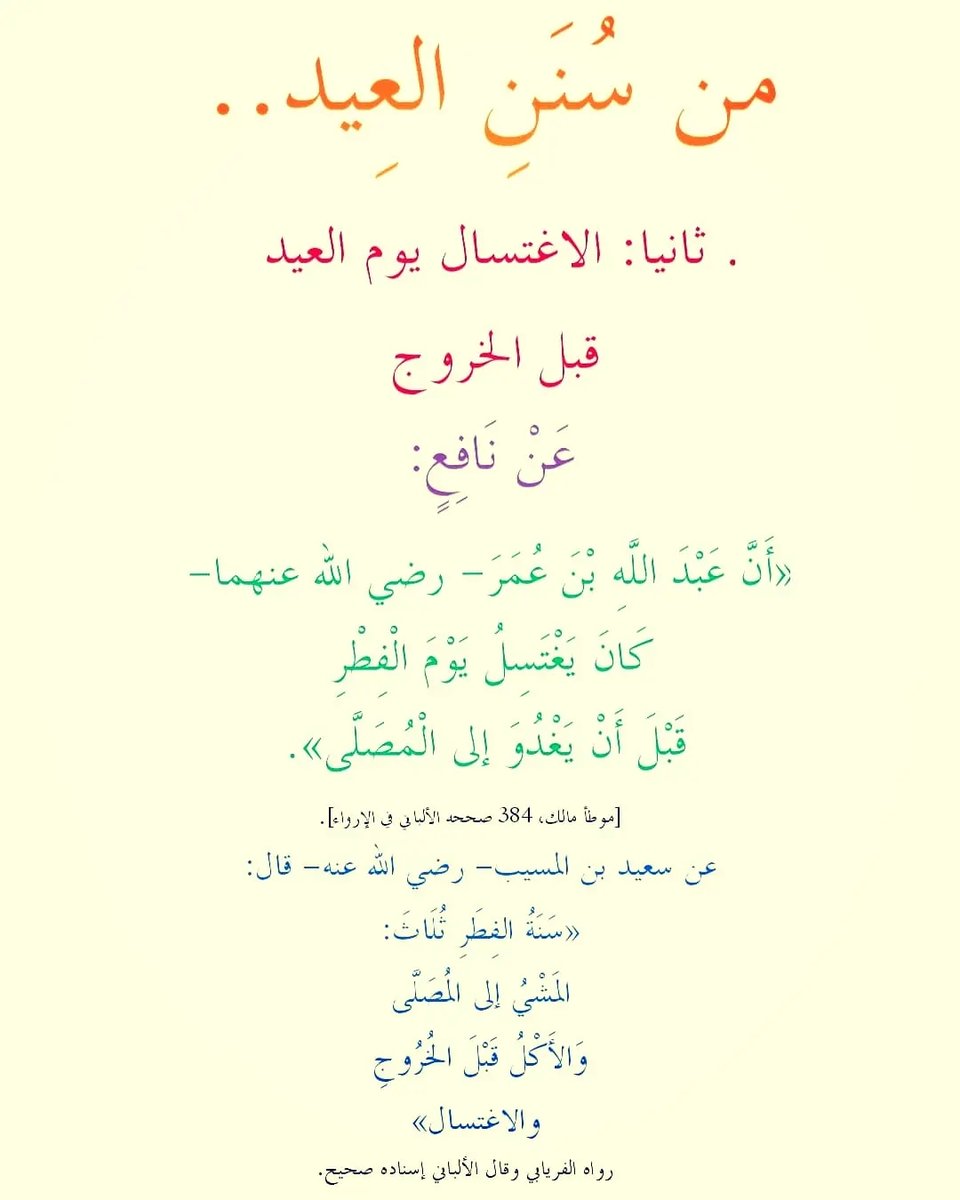 من سُنَنِ العِيد..
. ثانيا: الاغتسال يوم العيد
قبل الخروج
عَنْ نَافِعٍ:
«أَنَّ عَبْدَ اللَّهِ بْنَ عُمَرَ– رضي الله عنهما–
كَانَ يَغْتَسِلُ يَوْمَ الْفِطْرِ
قَبْلَ أَنْ يَغْدُوَ إلى الْمُصَلَّى».
[موطأ مالك، 384 صححه الألباني في الإرواء].
عن سعيد بن المسيب– رضي الله عنه– قال:
«سَنَةُ الفِطَرِ ثُلَاثَ:
المَشْيُ إلى المُصَلَّى
وَالأَكْلُ قَبْلَ الخُرُوجِ
والاغتسال»
رواه الفريابي وقال الألباني إسناده صحيح.